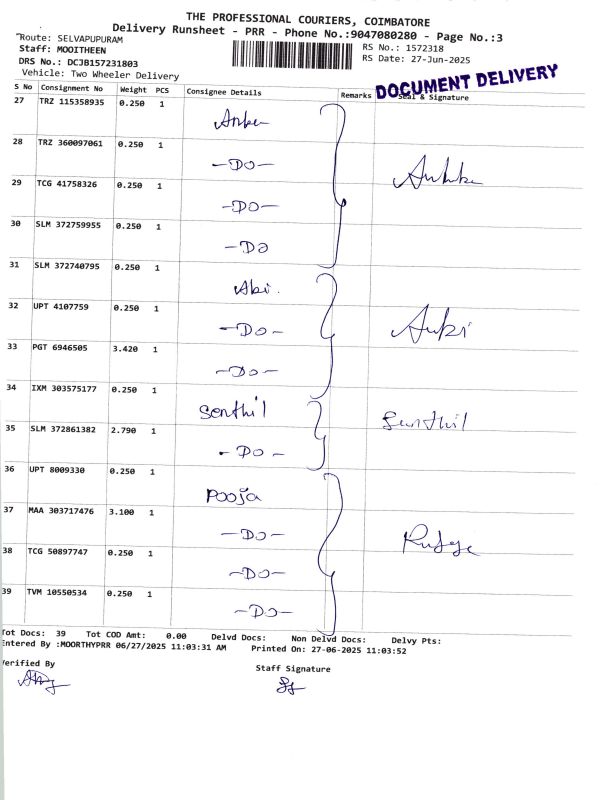 THE PROFESSIONAL COURIERS, COIMBATORE
Delivery Runsheet - PRR - Phone No.:9047080280 - Page No.:3
Route: SELVAPUPURAM
Staff: MOOITHEEN
DRS No.: DCJB157231803
Vehicle: Two Wheeler Delivery
RS No.: 1572318
RS Date: 27-Jun-2025
DOCUMENT DELIVERY
S No Consignment No Weight PCS Consignee Details Remarks Seal & Signature
27 TRZ 115358935 0.250 1
28 TRZ 360097061 0.250 1 -Do-
29 TCG 41758326 0.250 1 -Do-
30 SLM 372759955 0.250 1 -Do
31 SLM 372740795 0.250 1 Abi.
32 UPT 4107759 0.250 1 -Do-
33 PGT 6946505 3.420 1 -Do-
34 IXM 303575177 0.250 1 Senthil Senthil
35 SLM 372861382 2.790 1 -Do-
36 UPT 8009330 0.250 1 Pooja
37 MAA 303717476 3.100 1 -Do-
38 TCG 50897747 0.250 1 -Do-
39 TVM 10550534 0.250 1 -Do-
Tot Docs: 39 Tot COD Amt: 0.00 Delvd Docs: Non Delvd Docs: Delvy Pts:
Entered By :MOORTHYPRR 06/27/2025 11:03:31 AM Printed On: 27-06-2025 11:03:52
Verified By
Staff Signature